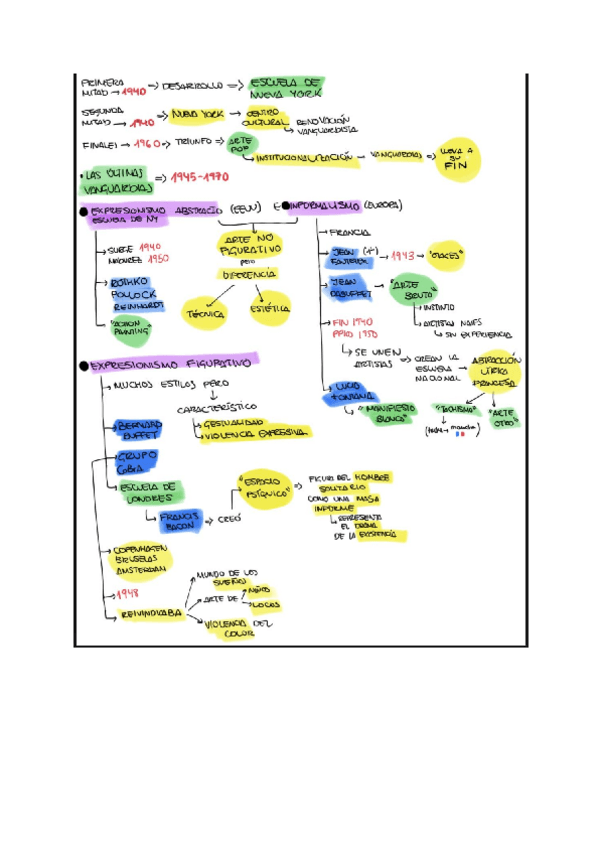 PRIMERA
MITAD → 1940 => DESARROLLO => ESCUELA DE
NUEVA YORK
SEGUNDA
MITAD → 1940 => NUEVA YORK → CENTRO
CULTURAL RENOVACIÓN
↳ VANGUARDISTA
FINALES → 1960 => TRIUNFO => ARTE
POP
↳ INSTITUCIONALIZACIÓN → VANGUARDIAS => LLEVA A
SU
FIN
• LAS ÚLTIMAS
VANGUARDIAS => 1945-1970
● EXPRESIONISMO ABSTRACTO (EEUU) E ● INFORMALISMO (EUROPA)
ESCUELA DE NY
→ SURGE 1940
MADUREZ 1950
→ ROTHKO
POLLOCK
REINHARDT
→ "ACTION
PAINTING"
ARTE NO
FIGURATIVO
pero
DIFERENCIA
TÉCNICA
ESTÉTICA
→ FRANCIA
→ JEAN (+) → 1943 → "OTAGES"
FAUTRIER
→ JEAN → "ARTE
DUBUFFET BRUTO"
→ INSTINTO
→ ARTISTAS NAIFS
↳ SIN EXPERIENCIA
→ FIN 1940
PPIO 1950
↳ SE UNEN
ARTISTAS => CREAN LA
ESCUELA
NACIONAL → ABSTRACCIÓN
LÍRICA
FRANCESA
"TACHISMO"
(tache → mancha)
"ARTE
OTRO"
→ LUCIO
FONTANA
↳ "MANIFIESTO
BLANCO"
● EXPRESIONISMO FIGURATIVO
→ MUCHOS ESTILOS PERO
↓
CARACTERÍSTICO
→ GESTUALIDAD
→ VIOLENCIA EXPRESIVA
→ BERNARD
BUFFET
→ GRUPO
CoBrA
→ ESCUELA DE
LONDRES
↳ FRANCIS
BACON => CREÓ
"ESPACIO
PSÍQUICO" => FIGURA DEL HOMBRE
SOLITARIO
COMO UNA MASA
INFORME
↳ REPRESENTA
EL DRAMA
DE LA EXISTENCIA
→ COPENHAGEN
BRUSELAS
AMSTERDAM
→ 1948
→ REIVINDICABA
MUNDO DE LOS
SUEÑOS
ARTE DE → NIÑOS
→ LOCOS
VIOLENCIA DEL
COLOR